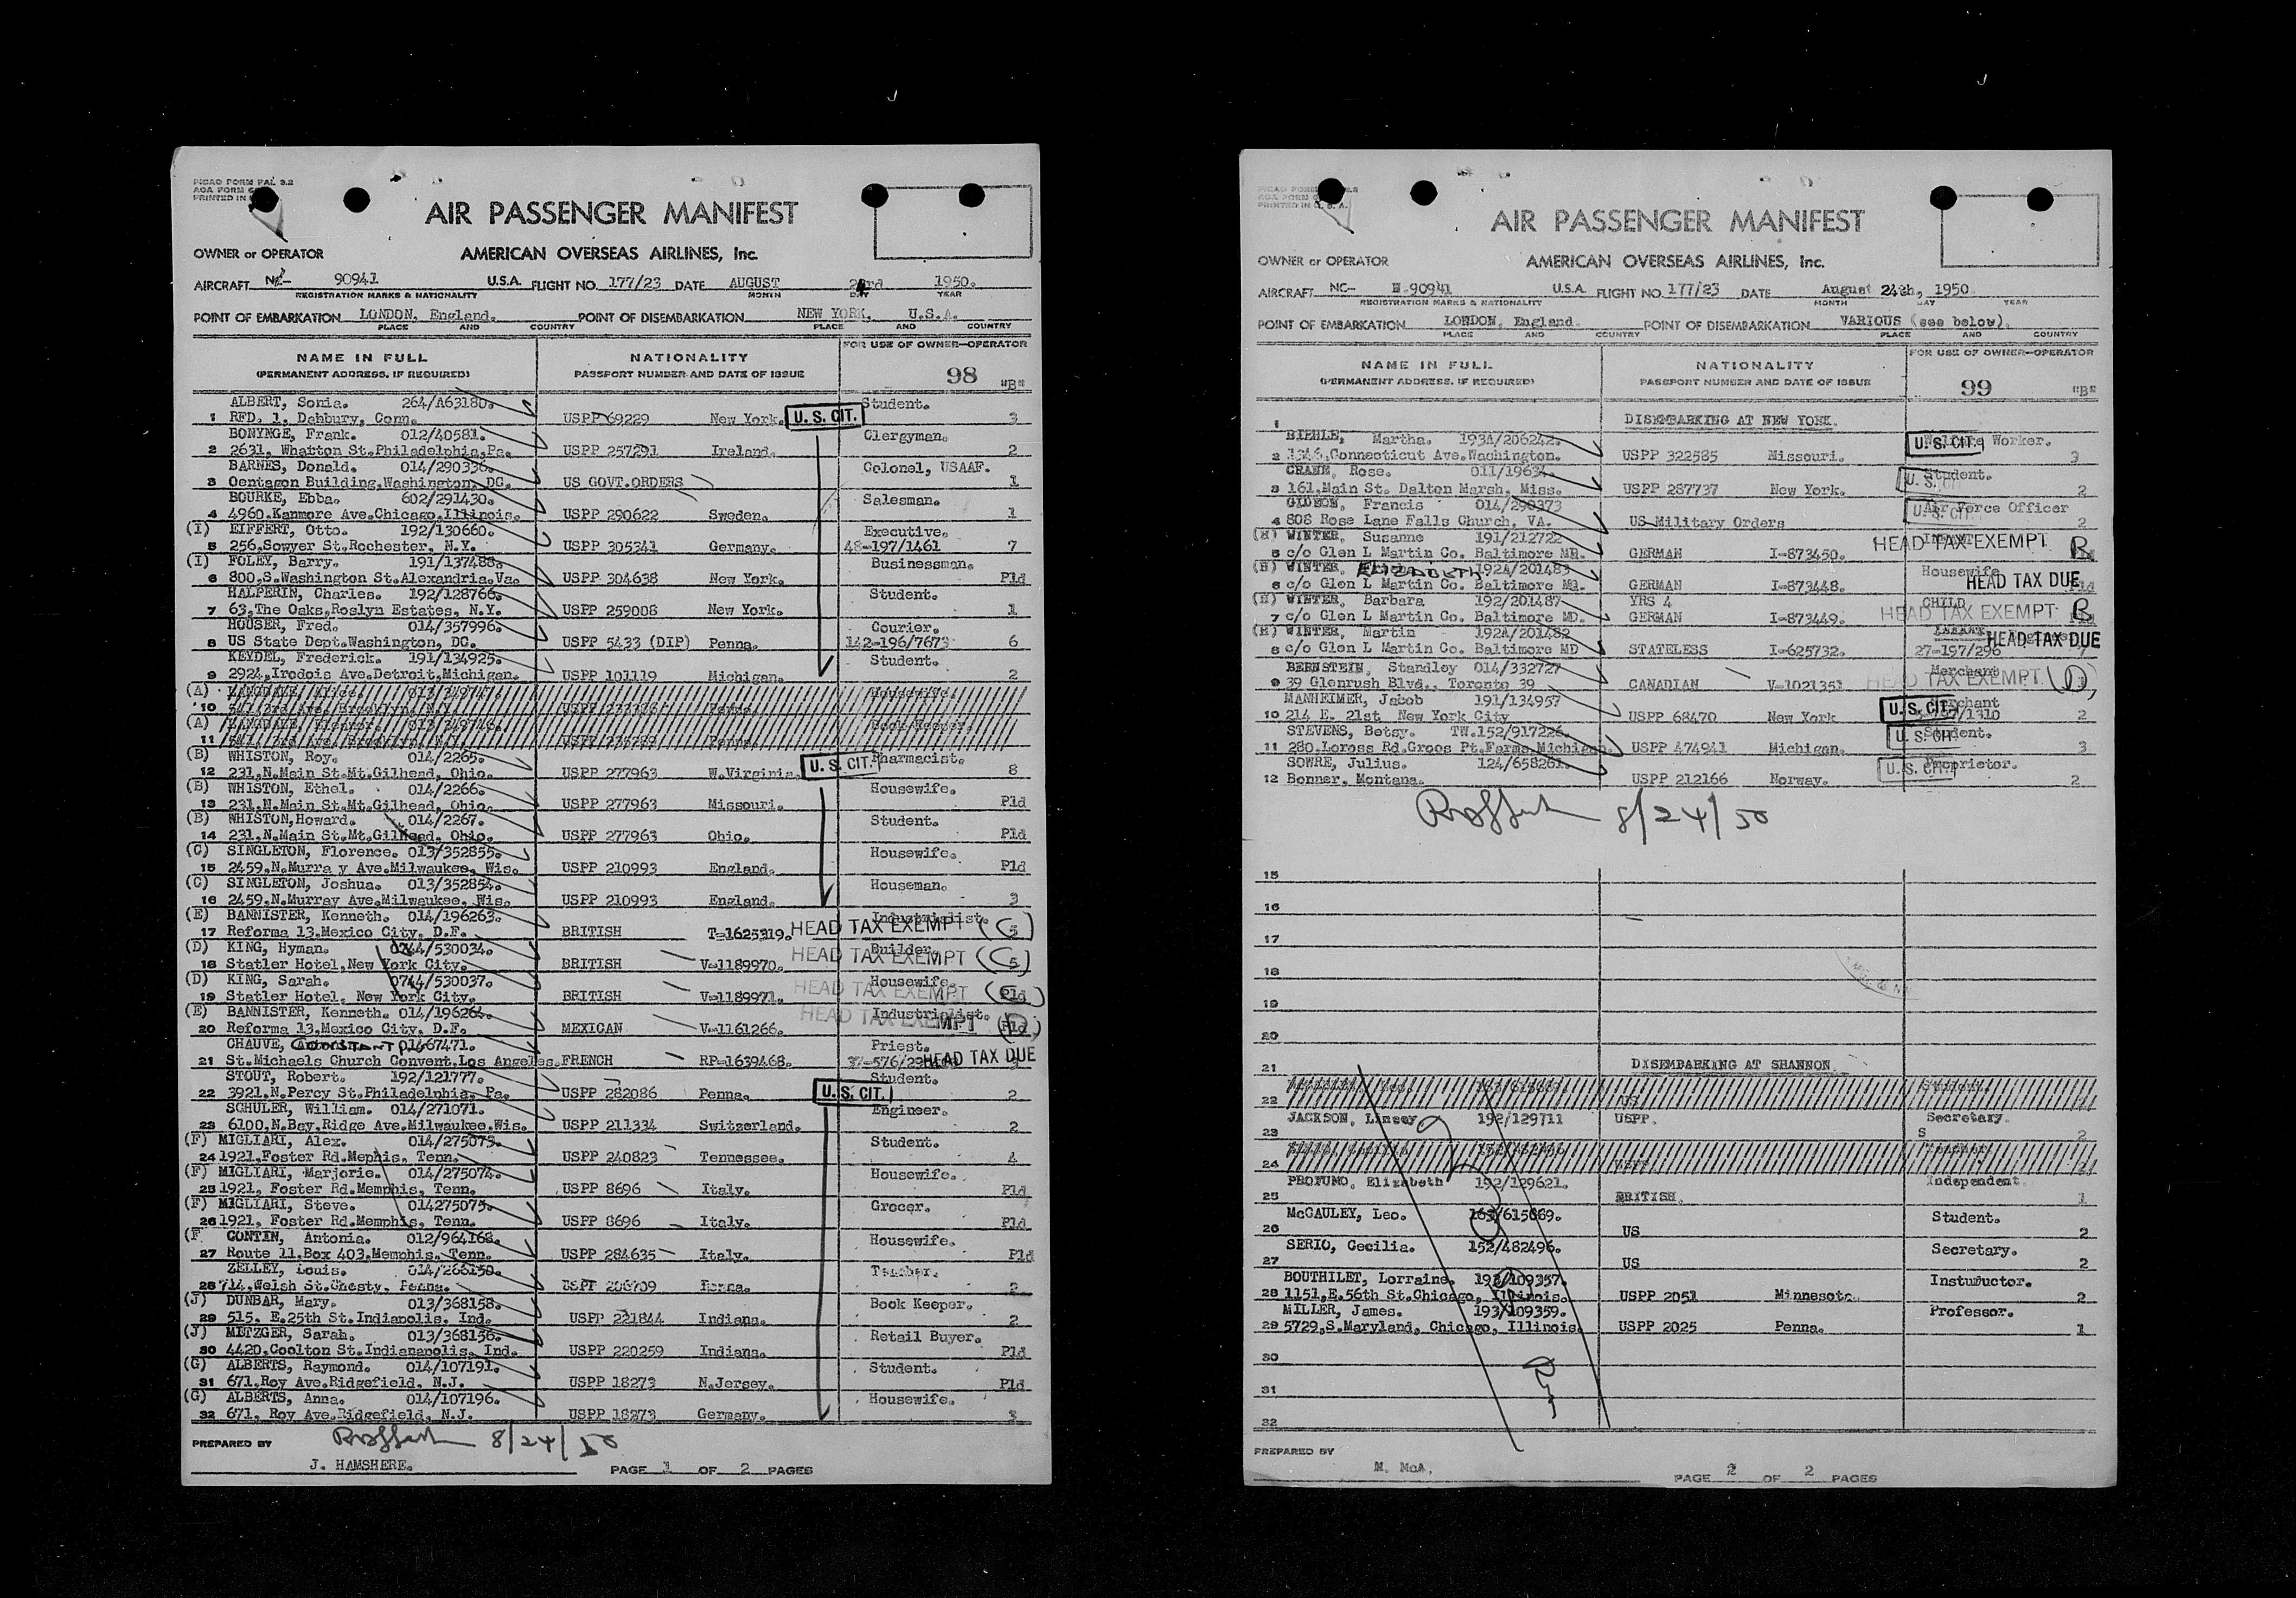 PICAO FORM PAL 3.2
AOA FORM
PRINTED IN
AIR PASSENGER MANIFEST
OWNER or OPERATOR AMERICAN OVERSEAS AIRLINES, Inc.
AIRCRAFT 90941 U.S.A. FLIGHT NO. 177/23 DATE AUGUST 1950.
REGISTRATION MARKS & NATIONALITY MONTH DAY YEAR
POINT OF EMBARKATION LONDON, England. POINT OF DISEMBARKATION NEW YORK, U.S.A.
PLACE AND COUNTRY PLACE AND COUNTRY
NAME IN FULL NATIONALITY FOR USE OF OWNER—OPERATOR
(PERMANENT ADDRESS, IF REQUIRED) PASSPORT NUMBER AND DATE OF ISSUE 98 "B"
ALBERT, Sonia. 264/A63180. Student.
1 RFD. 1. Dabbury, Conn. USPP 69229 New York. U. S. CIT. 3
BONYNGE, Frank. 012/40581. Clergyman.
2 2631, Whatton St.Philadelphia,Pa. USPP 257291 Ireland. 2
BARNES, Donald. 014/290336. Colonel, USAAF.
3 Oentagon Building,Washington, DC. US GOVT.ORDERS 1
BOURKE, Ebba. 602/291430. Salesman.
4 4960.Kanmore Ave.Chicago,Illinois. USPP 290622 Sweden. 1
(I) EIFFERT, Otto. 192/130660. Executive.
5 256,Sowyer St.Rochester, N.Y. USPP 305341 Germany. 48-197/1461 7
(I) FOLEY, Barry. 191/137488. Businessman.
6 800,S.Washington St.Alexandria,Va. USPP 304638 New York. Pld
HALPERIN, Charles. 192/128766. Student.
7 63,The Oaks,Roslyn Estates, N.Y. USPP 259008 New York. 1
HOUSER, Fred. 014/357996. Courier.
8 US State Dept.Washington, DC. USPP 5433 (DIP) Penna. 142-196/7673 6
KEYDEL, Frederick. 191/134925. Student.
9 2924,Irodois Ave.Detroit,Michigan. USPP 101119 Michigan. 2
(A)
10
(A)
11
(B) WHISTON, Roy. 014/2265. Pharmacist.
12 231,N.Main St.Mt.Gilhead, Ohio. USPP 277963 W.Virginia. U. S. CIT. 8
(B) WHISTON, Ethel. 014/2266. Housewife.
13 231,N.Main St.Mt.Gilhead, Ohio. USPP 277963 Missouri. Pld
(B) WHISTON,Howard. 014/2267. Student.
14 231,N.Main St.Mt.Gilhead, Ohio. USPP 277963 Ohio. Pld
(C) SINGLETON, Florence. 013/352855. Housewife.
15 2459,N.Murra y Ave.Milwaukee, Wis. USPP 210993 England. Pld
(C) SINGLETON, Joshua. 013/352854. Houseman.
16 2459,N.Murray Ave.Milwaukee, Wis. USPP 210993 England. 3
(E) BANNISTER, Kenneth. 014/196263. Industrialist.
17 Reforma 13.Mexico City, D.F. BRITISH T-1625319. HEAD TAX EXEMPT 5
(D) KING, Hyman. 0744/530034. Builder.
18 Statler Hotel,New York City. BRITISH V-1189970. HEAD TAX EXEMPT 5
(D) KING, Sarah. 0744/530037. Housewife.
19 Statler Hotel, New York City. BRITISH V-1189971. HEAD TAX EXEMPT Pld
(E) BANNISTER, Kenneth. 014/196264. Industrialist.
20 Reforma 13,Mexico City, D.F. MEXICAN V-1161266. HEAD TAX EXEMPT Pld
CHAUVE, 01467471. Priest.
21 St.Michaels Church Convent,Los Angeles. FRENCH RP-1639468. HEAD TAX DUE
STOUT, Robert. 192/121777. Student.
22 3921,N.Percy St.Philadelphia, Pa. USPP 282086 Penna. U. S. CIT. 2
SCHULER, William. 014/271071. Engineer.
23 6100,N.Bay,Ridge Ave.Milwaukee,Wis. USPP 211334 Switzerland. 2
(F) MIGLIARI, Alex. 014/275073. Student.
24 1921,Foster Rd.Mephis, Tenn. USPP 240823 Tennessee. 4
(F) MIGLIARI, Marjorie. 014/275074. Housewife.
25 1921, Foster Rd.Memphis, Tenn. USPP 8696 Italy. Pld
(F) MIGLIARI, Steve. 014275075. Grocer.
26 1921, Foster Rd.Memphis, Tenn. USPP 8696 Italy. Pld
(F CONTIN, Antonia. 012/964168. Housewife.
27 Route 11,Box 403,Memphis, Tenn. USPP 284635 Italy. Pld
ZELLEY, Louis. 014/266150. Teacher.
28 714,Welsh St.Chesty, Penna. Penna. 2
(J) DUNBAR, Mary. 013/368158. Book Keeper.
29 515, E.25th St.Indiapolis, Ind. USPP 221844 Indiana. 2
(J) METZGER, Sarah. 013/368156. Retail Buyer.
30 4420,Coolton St.Indianapolis, Ind. USPP 220259 Indiana. Pld
(G) ALBERTS, Raymond. 014/107191. Student.
31 671,Roy Ave.Ridgefield, N.J. USPP 18273 N.Jersey. Pld
(G) ALBERTS, Anna. 014/107196. Housewife.
32 671, Roy Ave.Ridgefield, N.J. USPP 18273 Germany. 3
PREPARED BY 8/24/50
J. HAMSHERE.
PAGE 1 OF 2 PAGES
AIR PASSENGER MANIFEST
OWNER or OPERATOR AMERICAN OVERSEAS AIRLINES, Inc.
AIRCRAFT NC- 90941 U.S.A. FLIGHT NO. 177/23 DATE August 24th, 1950.
REGISTRATION MARKS & NATIONALITY MONTH DAY YEAR
POINT OF EMBARKATION LONDON, England. POINT OF DISEMBARKATION VARIOUS (see below).
PLACE AND COUNTRY PLACE AND COUNTRY
NAME IN FULL NATIONALITY FOR USE OF OWNER—OPERATOR
(PERMANENT ADDRESS, IF REQUIRED) PASSPORT NUMBER AND DATE OF ISSUE 99 "B"
1 DISEMBARKING AT NEW YORK.
BIEHLE, Martha. 193A/206242. Worker.
2 1346,Connecticut Ave.Washington. USPP 322585 Missouri. U. S. CIT. 3
CRANE, Rose. 011/19634. Student.
3 161,Main St. Dalton Marsh, Miss. USPP 287737 New York. U. S. CIT 2
GIDEON, Francis 014/290373 Air Force Officer
4 808 Rose Lane Falls Church, VA. US Military Orders U. S. CIT. 2
(H) WINTER, Susanne 191/212722
5 c/o Glen L Martin Co. Baltimore MD. GERMAN I-873450. HEAD TAX EXEMPT B
(H) WINTER, ELIZABETH 192A/201483 Housewife
6 c/o Glen L Martin Co. Baltimore MD. GERMAN I-873448. HEAD TAX DUE Pld
(H) WINTER, Barbara 192/201487 YRS 4 CHILD
7 c/o Glen L Martin Co. Baltimore MD. GERMAN I-873449. HEAD TAX EXEMPT B
(H) WINTER, Martin 192A/201482 HEAD TAX DUE
8 c/o Glen L Martin Co. Baltimore MD STATELESS I-625732. 27-197/296
BERNSTEIN, Standley 014/332727 Merchant
9 39 Glenrush Blvd., Toronto 39 CANADIAN V-1021351 HEAD TAX EXEMPT
MANHEIMER, Jacob 191/134957 Merchant
10 214 E. 21st New York City USPP 68470 New York U. S. CIT. 2
STEVENS, Betsy. TW.152/917226. Student.
11 280,Loross Rd.Groos Pt.Farms,Michigan. USPP 474941 Michigan. U. S. CIT. 3
SOWRE, Julius. 124/658261. Proprietor.
12 Bonner, Montana. USPP 212166 Norway. U. S. CIT. 2
8/24/50
15
16
17
18
19
20
21 DISEMBARKING AT SHANNON.
22
JACKSON, Linsey 192/129711 USPP. Secretary.
23 S 2
24
PROFUMO, Elizabeth 192/129621. Independent
25 BRITISH. 1
McCAULEY, Leo. 163/615669. Student.
26 US 2
SERIO, Cecilia. 152/482496. Secretary.
27 US 2
BOUTHILET, Lorraine. 193/109357. Instuductor.
28 1151,E.56th St.Chicago, Illinois. USPP 2051 Minnesota. 2
MILLER, James. 193/109359. Professor.
29 5729,S.Maryland, Chicago, Illinois. USPP 2025 Penna. 1
30
31
32
PREPARED BY
M. McA.
PAGE 2 OF 2 PAGES